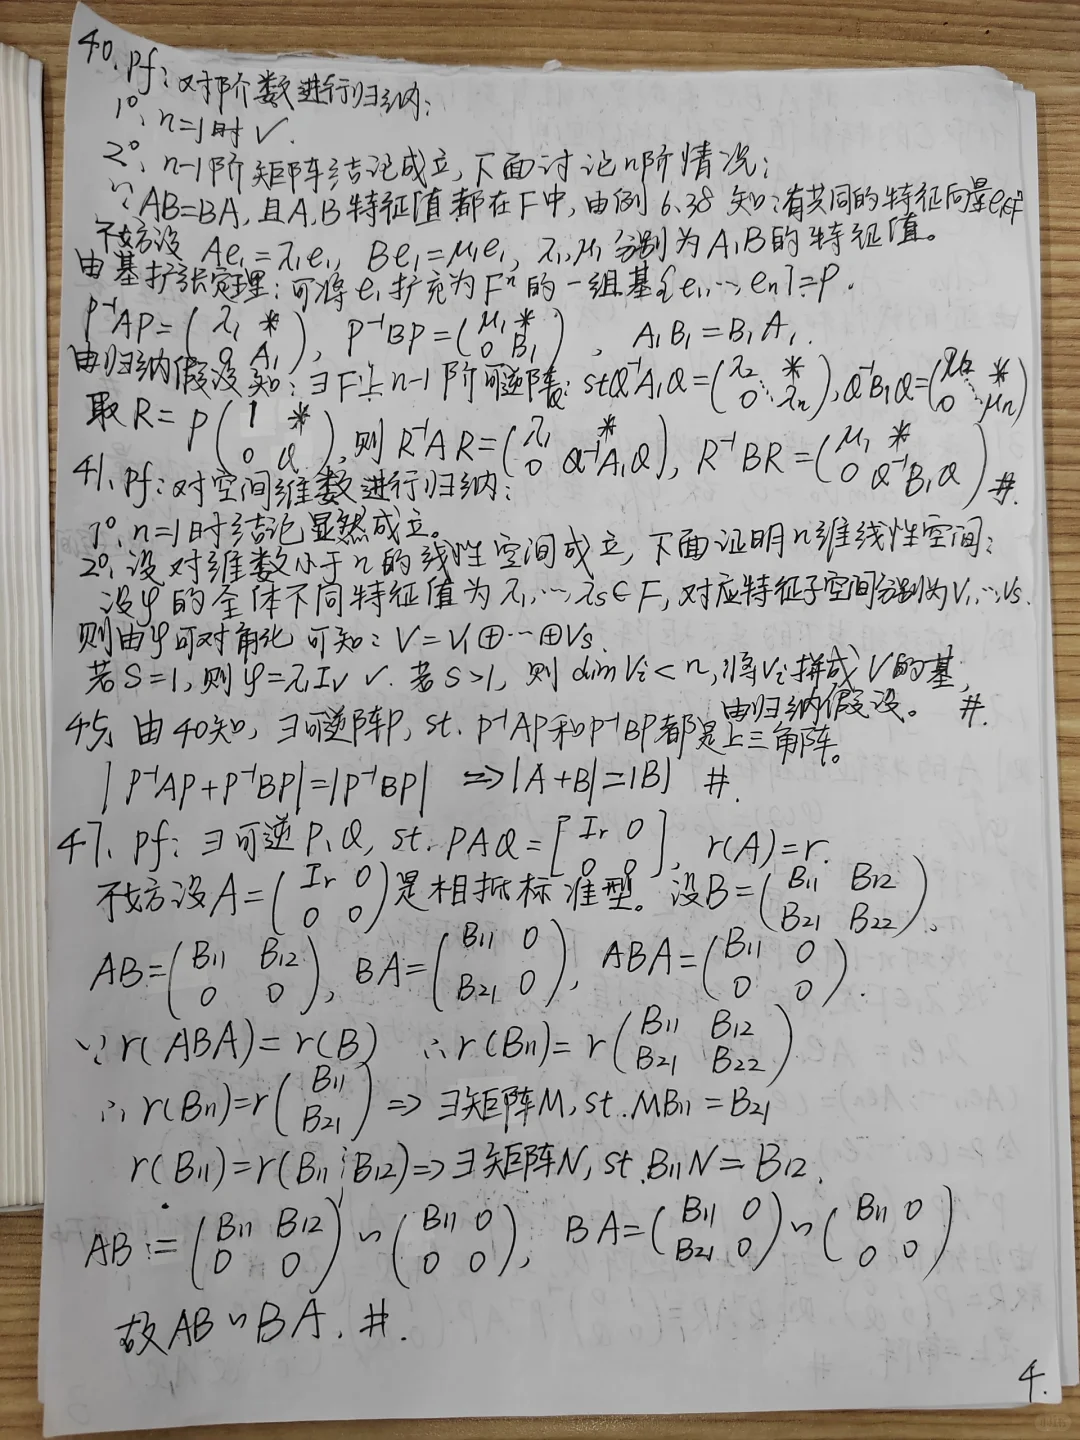 40. pf: 对阶数进行归纳:
1°. n=1时 √.
2°. n-1阶矩阵结论成立, 下面讨论n阶情况:
∵ AB=BA, 且A,B特征值都在F中, 由例6.38知:有共同的特征向量e₁∈Fⁿ
不妨设 Ae₁=λ₁e₁, Be₁=μ₁e₁, λ₁,μ₁分别为A,B的特征值。
由基扩张定理: 可将e₁扩充为Fⁿ的一组基{e₁,…,eₙ}=P.
P⁻¹AP=(λ₁ * ; 0 A₁), P⁻¹BP=(μ₁ * ; 0 B₁), A₁B₁=B₁A₁.
由归纳假设知: ∃F上n-1阶可逆阵Q: st Q⁻¹A₁Q=(λ₂ * ⋱ 0 λₙ), Q⁻¹B₁Q=(μ₂ * ⋱ 0 μₙ)
取R=P(1 * ; 0 Q), 则R⁻¹AR=(λ₁ * ; 0 Q⁻¹A₁Q), R⁻¹BR=(μ₁ * ; 0 Q⁻¹B₁Q) #.
41. pf: 对空间维数进行归纳:
1°. n=1时结论显然成立。
2°. 设对维数小于n的线性空间成立, 下面证明n维线性空间:
设φ的全体不同特征值为λ₁,…,λs∈F, 对应特征子空间分别为V₁,…,Vs.
则由φ可对角化可知: V=V₁⊕…⊕Vs.
若S=1, 则φ=λ₁Iv √. 若S>1, 则dimVi<n, 将Vi拼成V的基,
由归纳假设。 #.
45. 由40知, ∃可逆阵P, st. P⁻¹AP和P⁻¹BP都是上三角阵。
|P⁻¹AP+P⁻¹BP|=|P⁻¹BP| ⟹|A+B|=|B| #.
47. pf: ∃可逆P,Q, st. PAQ=[Ir 0 ; 0 0], r(A)=r.
不妨设A=(Ir 0 ; 0 0)是相抵标准型。设B=(B₁₁ B₁₂ ; B₂₁ B₂₂).
AB=(B₁₁ B₁₂ ; 0 0), BA=(B₁₁ 0 ; B₂₁ 0), ABA=(B₁₁ 0 ; 0 0).
∵ r(ABA)=r(B) ∴r(B₁₁)=r(B₁₁ B₁₂ ; B₂₁ B₂₂)
∴ r(B₁₁)=r(B₁₁ ; B₂₁) ⟹ ∃矩阵M, st. MB₁₁=B₂₁
r(B₁₁)=r(B₁₁⋮B₁₂)⟹∃矩阵N, st. B₁₁N=B₁₂.
AB:=(B₁₁ B₁₂ ; 0 0)∽(B₁₁ 0 ; 0 0), BA=(B₁₁ 0 ; B₂₁ 0)∽(B₁₁ 0 ; 0 0)
故AB∽BA. #.
4.